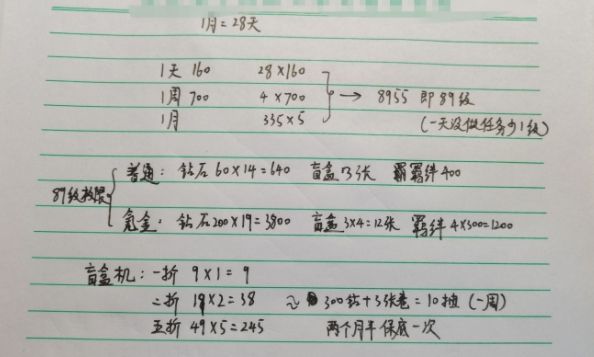 1月=28天
1天 160 28×160
1周 700 4×700 → 8955 即89级
1月 335×5 (一天没做任务少1级)
普通: 钻石60×14=640 盲盒13张 羁绊400
89级
氪金: 钻石200×19=3800 盲盒3×4=12张 羁绊4×300=1200
盲盒机: 一折 9×1=9
二折 19×2=38 ≈ 300钻+3张卷=10抽 (一周)
五折 49×5=245 两个月半保底一次